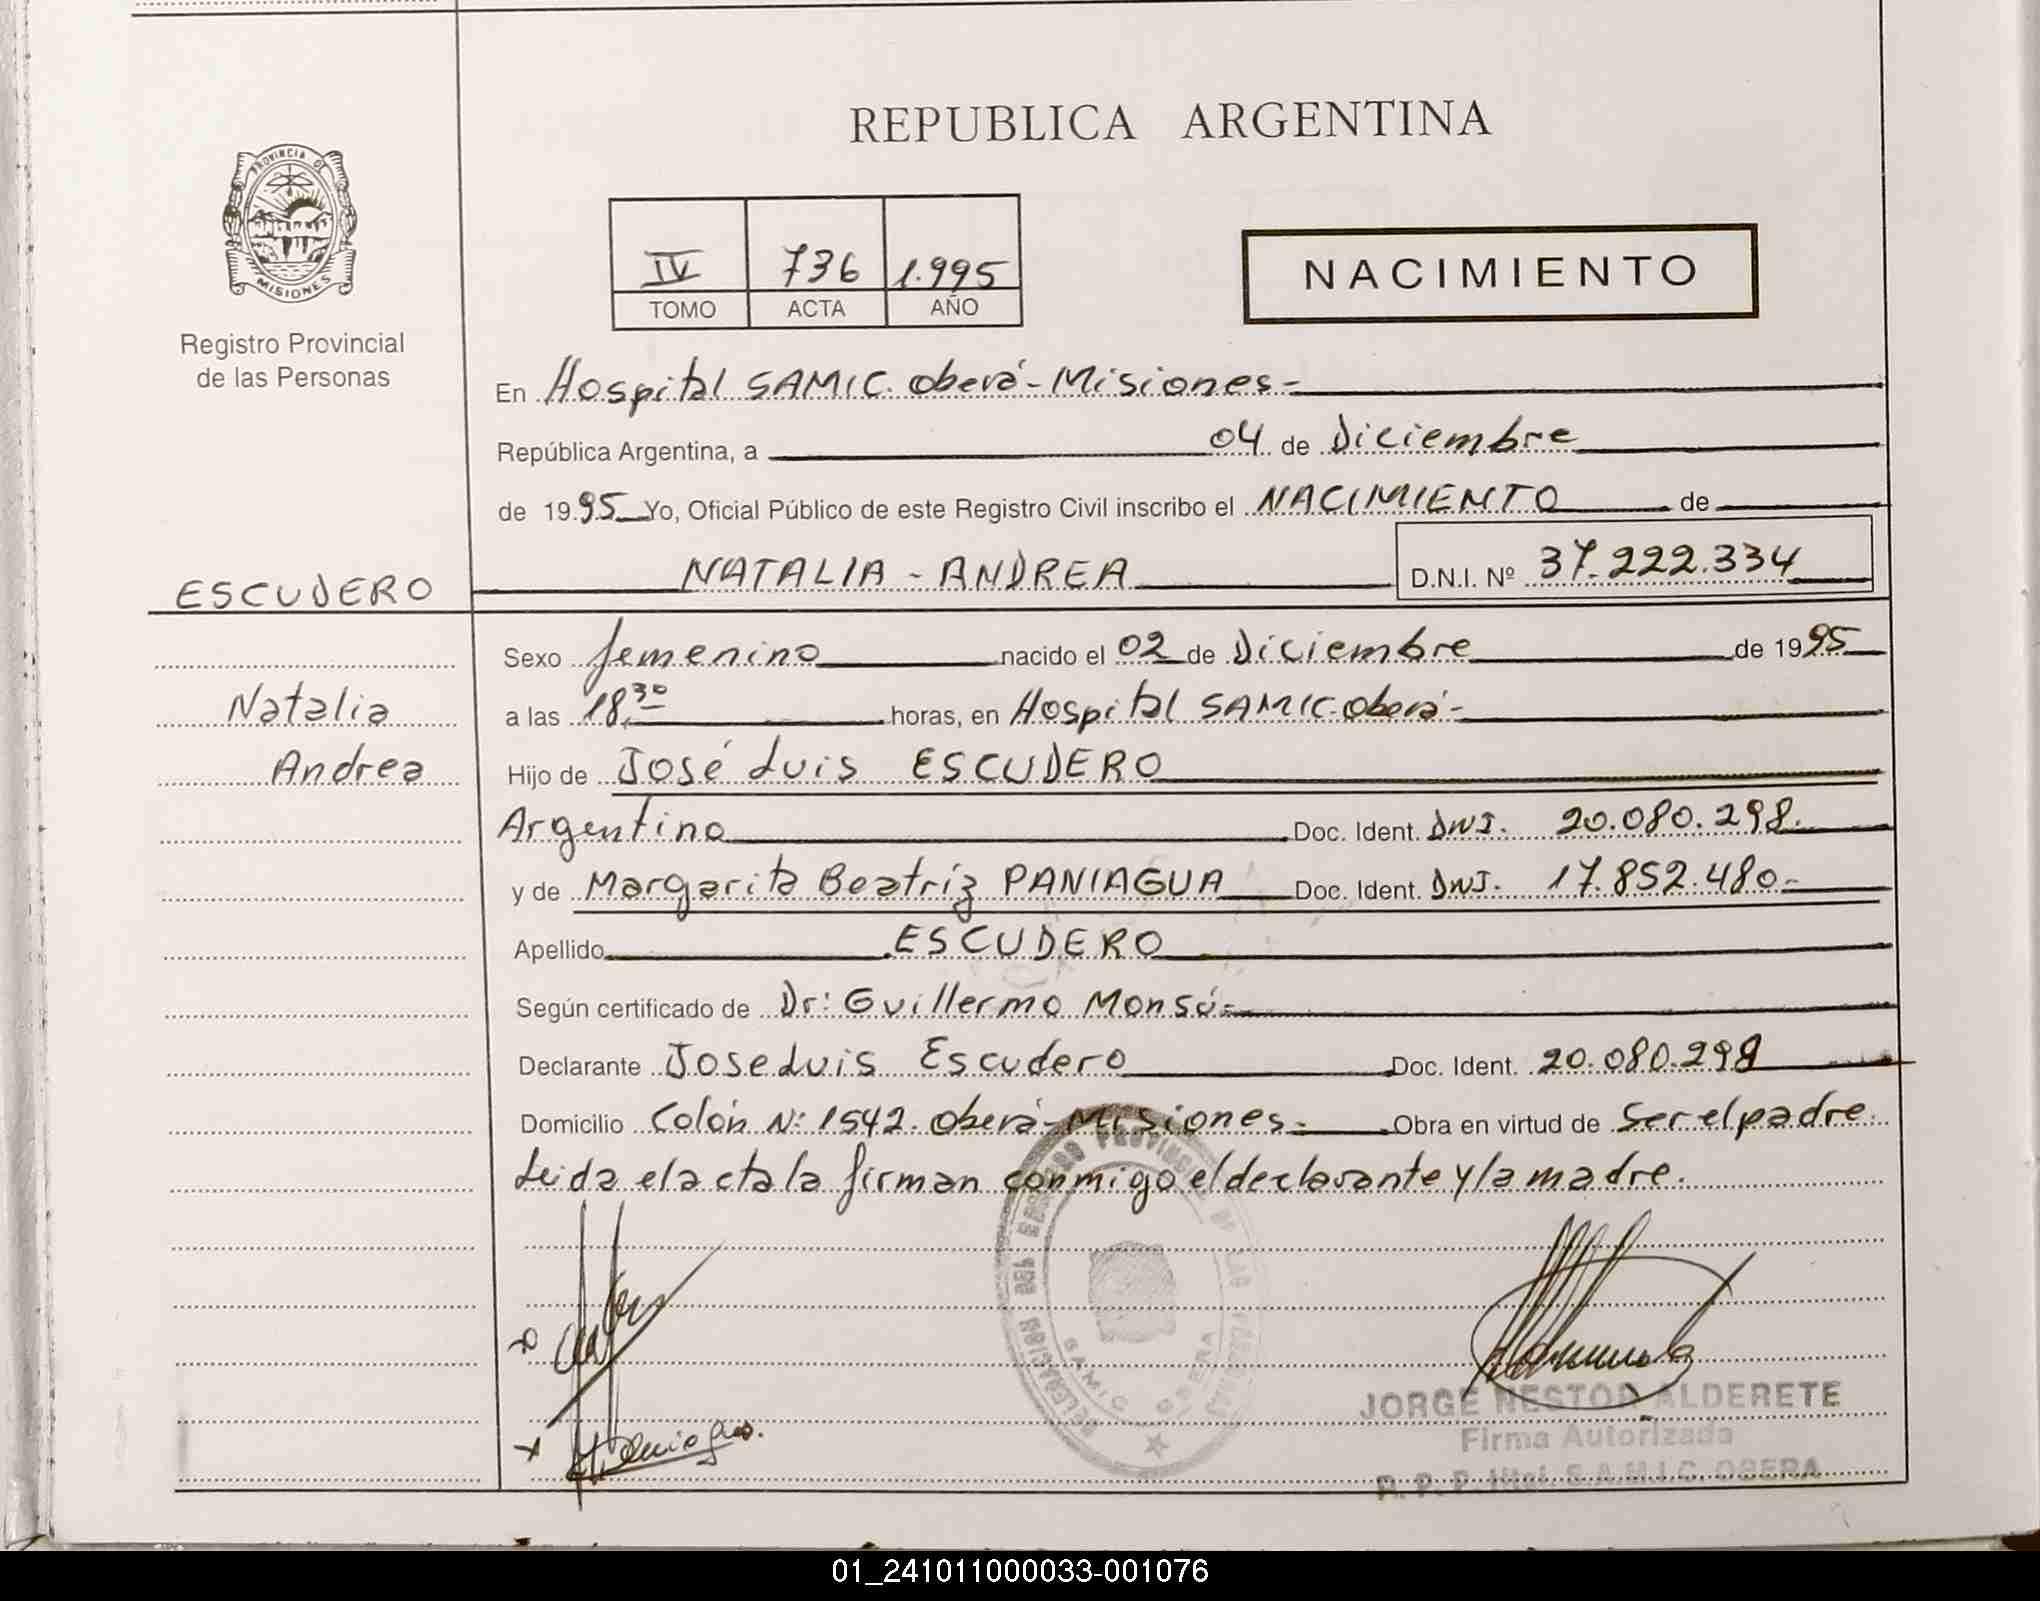 REPUBLICA ARGENTINA
PROVINCIA DE
MISIONES
Registro Provincial
de las Personas
IV 736 1.995
TOMO ACTA AÑO
NACIMIENTO
En Hospital SAMIC. Oberá - Misiones -
República Argentina, a 04 de Diciembre
de 1995 Yo, Oficial Público de este Registro Civil inscribo el NACIMIENTO de
ESCUDERO NATALIA - ANDREA D.N.I. Nº 37.222.334
Sexo femenino nacido el 02 de Diciembre de 1995
Natalia a las 18,30 horas, en Hospital SAMIC. Oberá -
Andrea Hijo de José Luis ESCUDERO
Argentino Doc. Ident. DNI. 20.080.298.
y de Margarita Beatríz PANIAGUA Doc. Ident. DNI. 17.852.480-
Apellido ESCUDERO
Según certificado de Dr: Guillermo Monsó-
Declarante Jose Luis Escudero Doc. Ident. 20.080.298
Domicilio Colón N: 1542. Oberá - Misiones - Obra en virtud de Ser el padre.
Leida el acta la firman conmigo el declarante y la madre.
DELEGACION DEL REGISTRO PROVINCIAL DE LAS PERSONAS
SAMIC OBERA
JORGE NESTOR ALDERETE
Firma Autorizada
R. P. P. Htal. S.A.M.I.C. OBERA
01_241011000033-001076